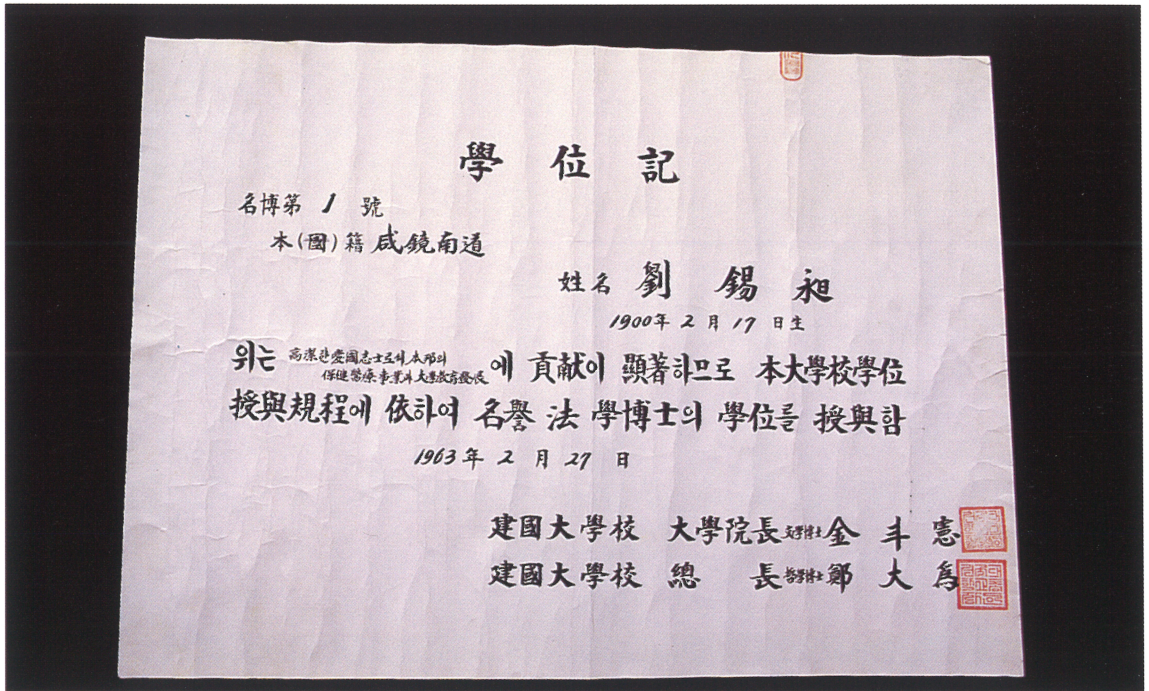 學位記
名博第 1 號
本(國)籍 咸鏡南道
姓名 劉錫昶
1900年 2月 17日生
위는 高潔한 愛國志士로서 本邦의
保健醫療事業과 大學敎育發展에 貢献이 顯著하므로 本大學校學位
授與規程에 依하여 名譽 法學博士의 學位를 授與함
1963年 2月 27日
建國大學校 大學院長 文學博士 金斗憲
建國大學校 總長 哲學博士 鄭大爲